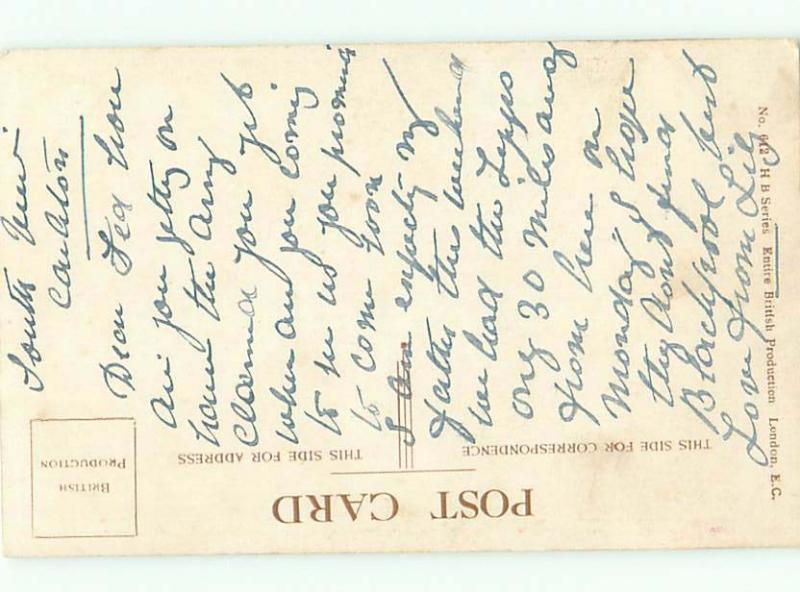 South View
Coulston
Dear Fea how
are you getting on
have the army
claimed you yet
when are you coming
to see us you promised
to come soon
I am expecting my
father this weekend
we had the Zepps
only 30 miles away
from here on
Monday I hope
they dont find
Blackpool best
Love from Lily
POST CARD
THIS SIDE FOR CORRESPONDENCE
THIS SIDE FOR ADDRESS
BRITISH
PRODUCTION
No. 612 H B Series Entire British Production London, E.C.